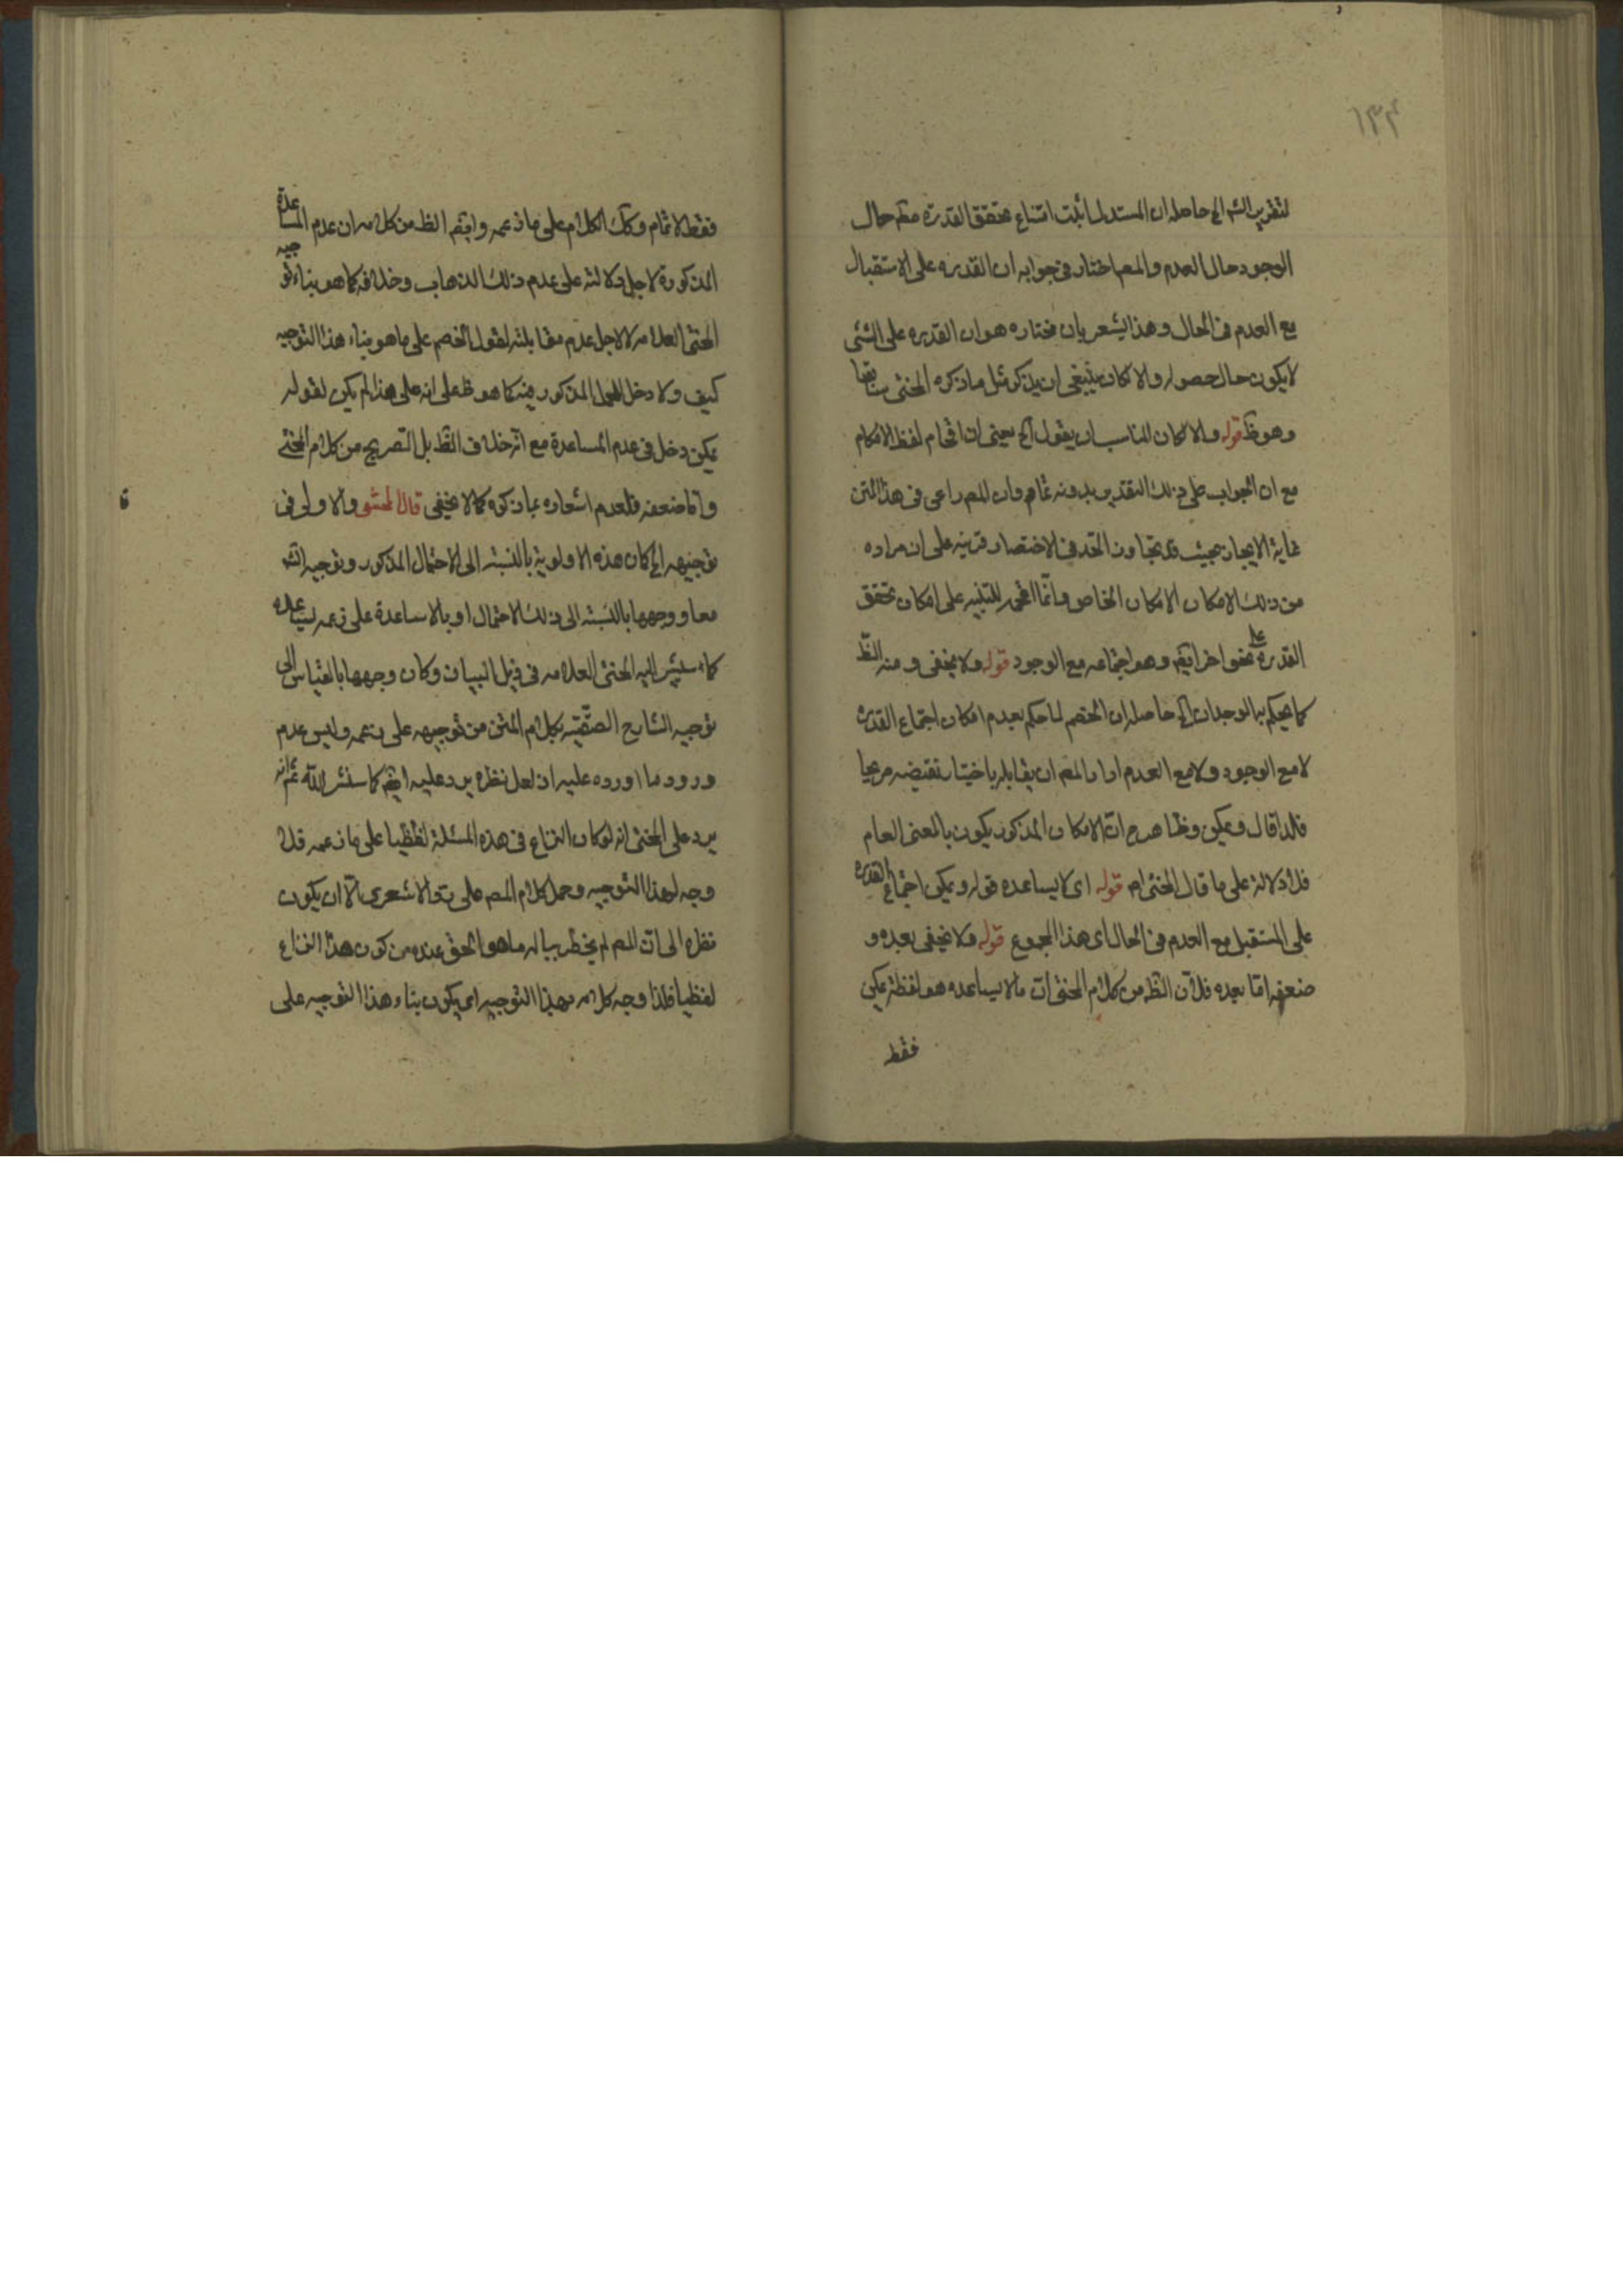 ١٣٤
لتقرير الشه الخ حاصله ان المستدل اثبت امتناع تحقق القدرة مطم حال
الوجود حال العدم والمصم اختار فى جوابه ان القدره على الاستقبال
مع العدم فى الحال وهذا يشعر بان مختاره هو ان القدره على الشئ
لا يكون حال حصوله والا لكان ينبغى ان يذكر مثل ما ذكره المحشى سابقا
وهو ظ قوله والا لكان المناسب ان يقول الخ يعنى ان اقحام لفظ الامكان
مع ان الجواب على ذلك التقدير بدونه تمام وان المصم راعى فى هذا المتن
غاية الايجاز بحيث قد يتجاوز الحد فى الاختصار قرينه على ان مراده
من ذلك الامكان الامكان الخاص وانما اقحمه للتنبيه على امكان تحقق
القدره على نحو اخر ايضم وهو اجتماعه مع الوجود قوله ولا يخفى ومنه الظ
كما يحكم به الوجدان الخ حاصله ان الخصم لما حكم بعدم امكان اجتماع القدره
لا مع الوجود ولا مع العدم اراد المصم ان يقابله باختيار نقيضه صريحا
فلذا قال ويمكن وظاهره ان الامكان المذكور يكون بالمعنى العام
فلا دلالة على ما قال المحشى ام قوله اى لا يساعده قوله ويمكن اجتماع القدره
على المستقبل مع العدم فى الحال اى هذا المجموع قوله ولا يخفى بعده و
ضعفه اما بعده فلان الظ من كلام المحشى ان ما لا يساعده هو لفظة يمكن
فقط
فقط لاتمام وكك الكلام على ما زعمه وايضم الظ من كلامه ان عدم المساعدة
المذكورة لاجل دلالته على عدم ذلك الذهاب وخلافه كما هو بناء توجيه
المحشى العلامه لا لاجل عدم مقابلته لقول الخصم على ما هو بناء هذا التوجيه
كيف ولا دخل للحمل المذكور فيه كما هو ظ على انه على هذا لم يكن لقوله
يمكن دخل فى عدم المساعدة مع انه خلاف الظ بل التصريح من كلام المحشى
واما ضعفه فلعدم اشعاره بما ذكره كما لا يخفى قال المحشى والاولى فى
توجيهه الخ كان هذه الاولوية بالنسبة الى الاحتمال المذكور وتوجيه الشه
معا ووجهها بالنسبة الى ذلك الاحتمال او بالا ساعدة على زعمه يساعده
كما سيشير اليه المحشى العلامه فى ذيل البيان وكان وجهها بالقياس الى
توجيه الشارح الصقيه بكلام المتن من توجيهه على زعمه وليس عدم
ورود ما اورده عليه اذ لعل نظره يرد عليه ايضم كما سنشير الله ثم انه
يرد على المحشى انه لو كان النزاع فى هذه المسئلة لفظيا على ما زعمه فلا
وجه لهذا التوجيه وحمل كلام المصم على رد الاشعرى الا ان يكون
نظره الى ان المصم لم يخطر بباله ما هو الحق عنده من كون هذا النزاع
لفظيا فلذا وجه كلامه بهذا التوجيه اى يكون بناء هذا التوجيه على